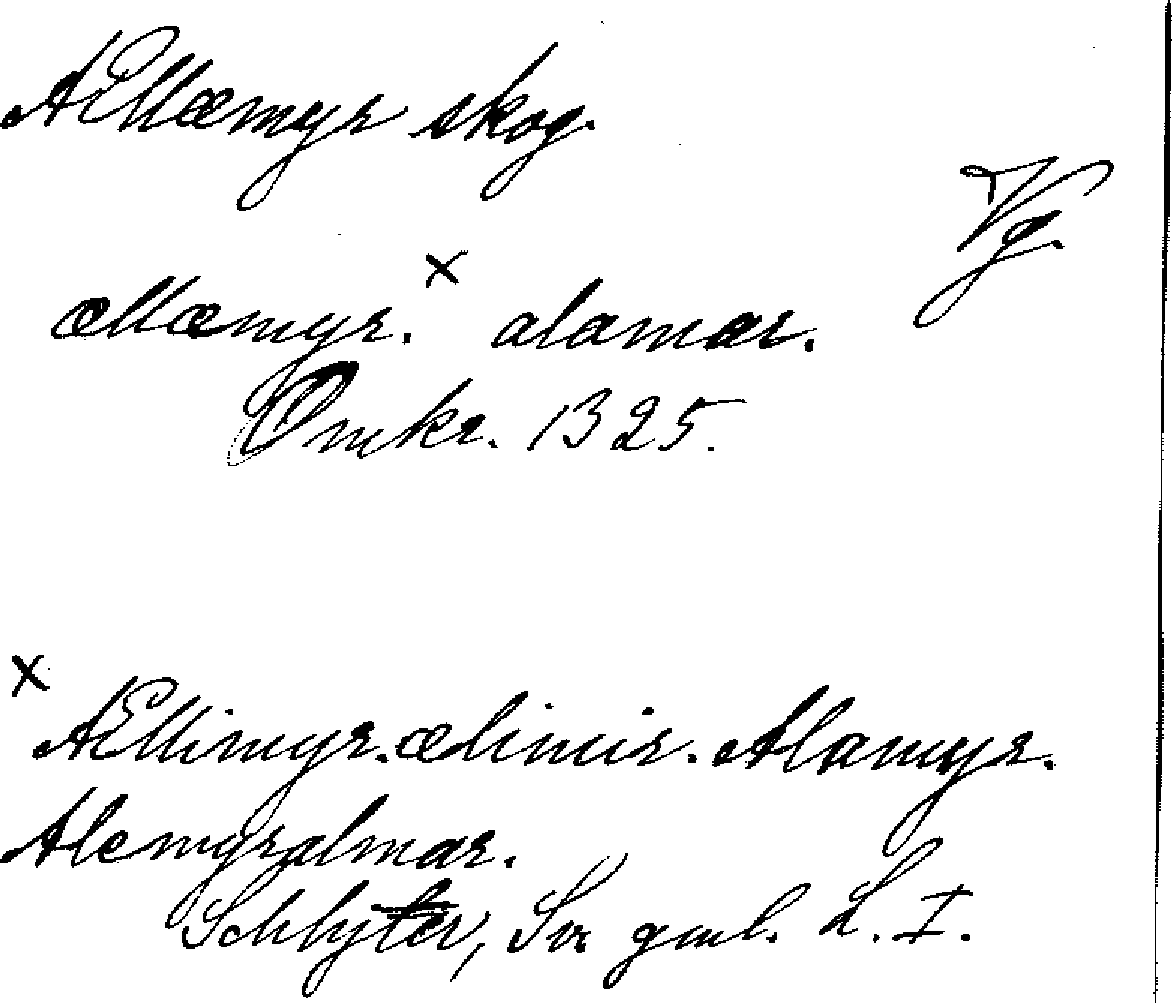 Ællæmyr skog.
Vg.
ællæmyr.× alamær.
Omkr. 1325.
× Ællimyr. ælimir. Alamyr.
Alemyr almar.
Schlyter, Sv. gml. L. I.